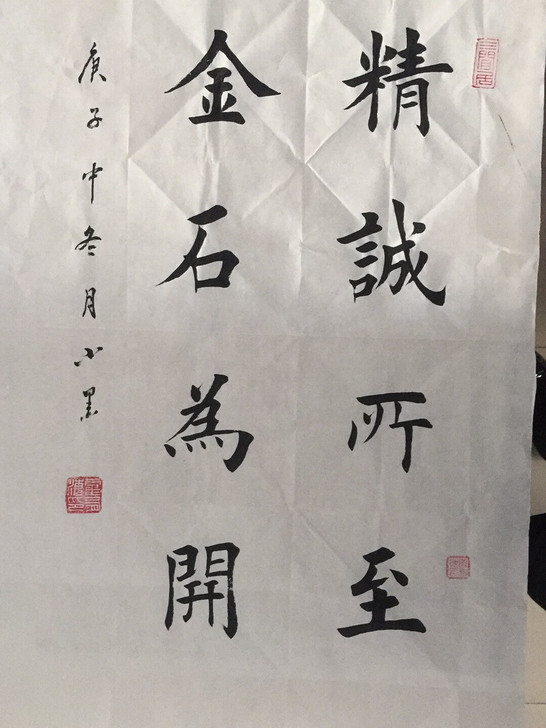 精誠所至
金石為開
庚子中冬月小墨